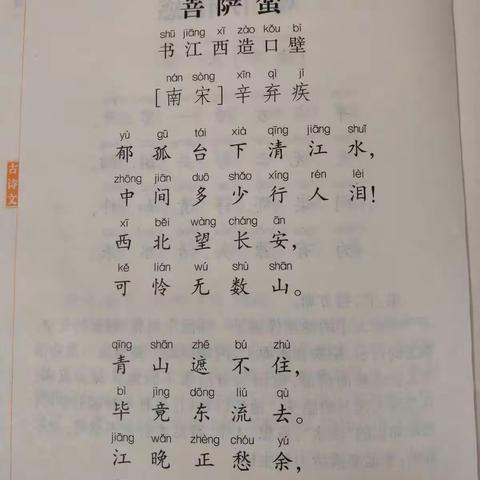 菩萨蛮
shū jiāng xī zào kǒu bì
书江西造口壁
nán sòng xīn qì jí
[南宋]辛弃疾
yù gū tái xià qīng jiāng shuǐ
郁孤台下清江水，
zhōng jiān duō shǎo xíng rén lèi
中间多少行人泪！
xī běi wàng cháng ān
西北望长安，
kě lián wú shù shān
可怜无数山。
qīng shān zhē bú zhù
青山遮不住，
bì jìng dōng liú qù
毕竟东流去。
jiāng wǎn zhèng chóu yú
江晚正愁余，
古诗文